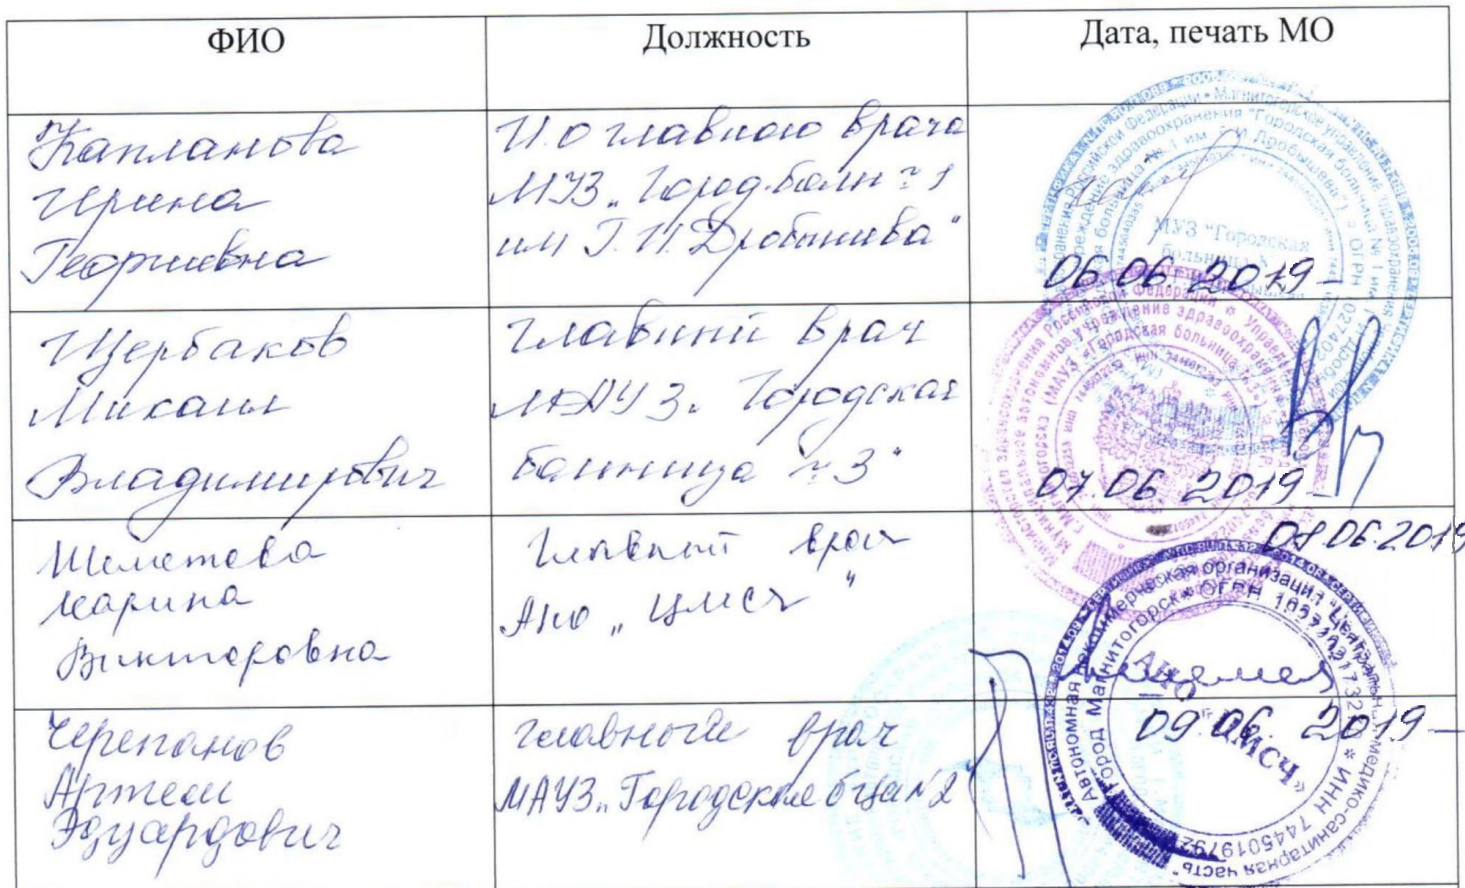 ФИО
Должность
Дата, печать МО
Капланова
Ирина
Георгиевна
И.О главного врача
МУЗ „Город.больн №1
им Г.И Дробышева"
МУЗ "Городская
больница
06.06.2019
Щербаков
Михаил
Владимирович
главный врач
МАУЗ „Городская
больница №3"
07.06.2019
Шеметова
Марина
Викторовна
Главный врач
АНО „ЦМСЧ"
08.06.2019
Автономная некоммерческая организация "Центральная медико-санитарная часть"
город Магнитогорск * ОГРН
* ИНН 7445019792
АНО
"ЦМСЧ"
Черепанов
Артем
Эдуардович
главный врач
МАУЗ „Городская б-ца №2"
09.06.2019